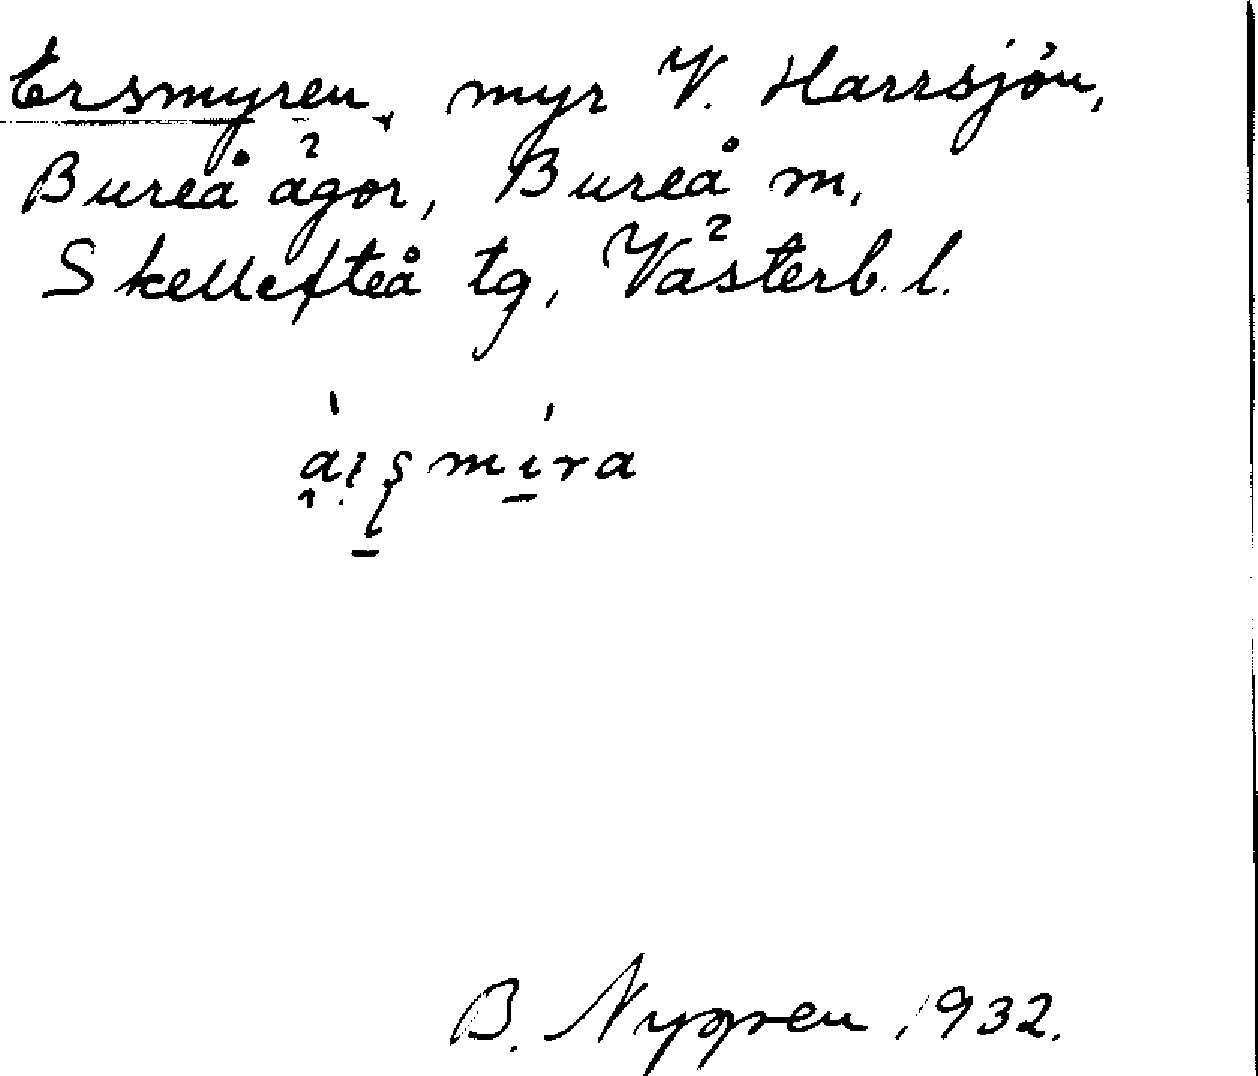 Ersmyren, myr V. Harrsjön,
Bureå ägor, Bureå m,
Skellefteå tg, Västerb. l.
B. Nygren 1932.